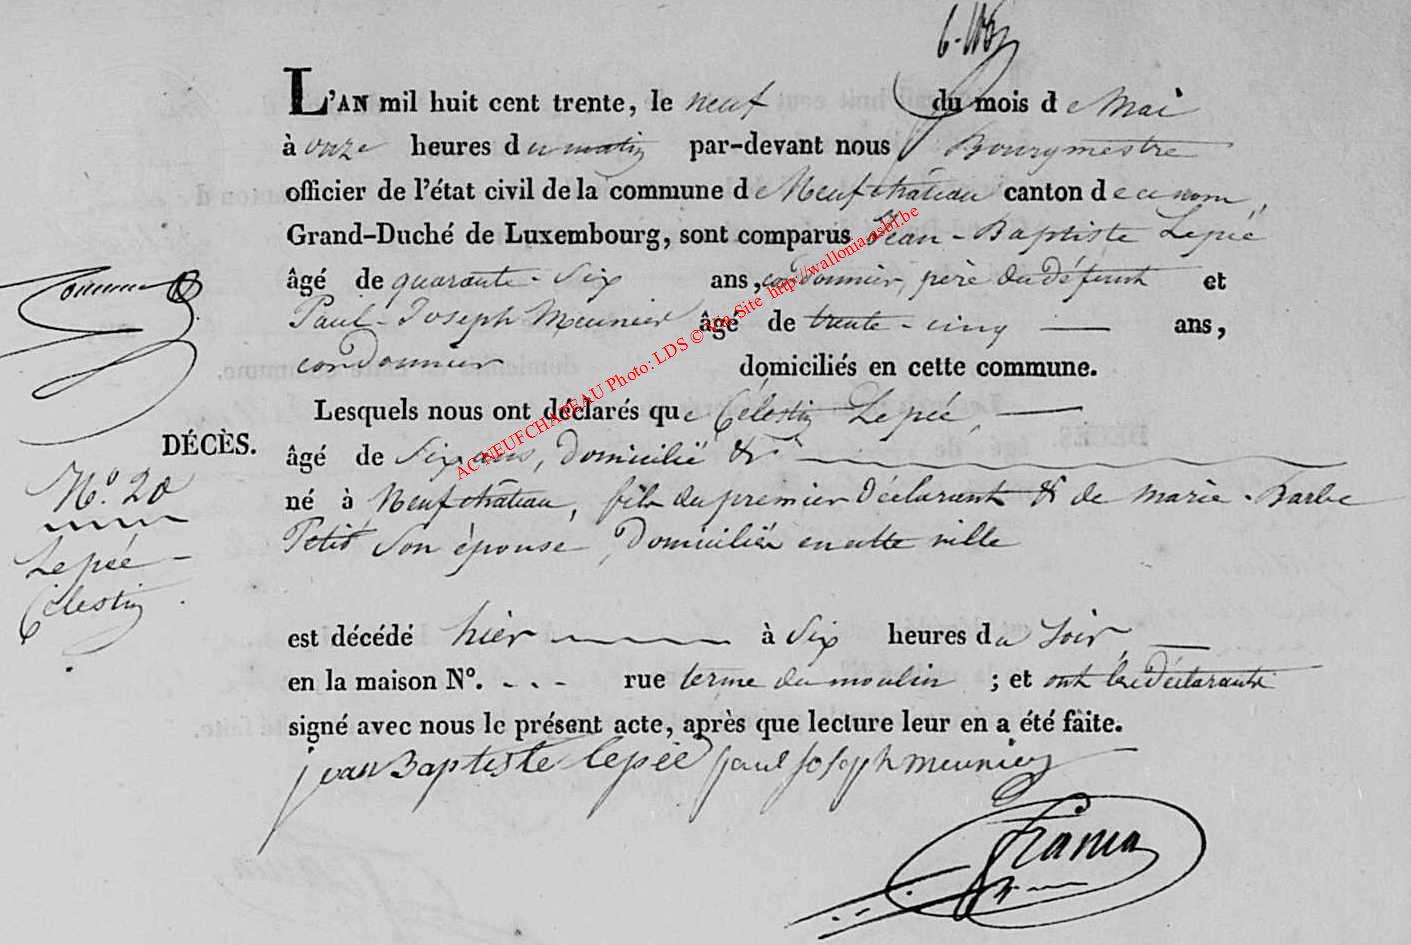 L'AN mil huit cent trente, le neuf du mois de Mai
à onze heures du matin par-devant nous Bourgmestre
officier de l'état civil de la commune de Neufchâteau canton de ce nom,
Grand-Duché de Luxembourg, sont comparus Jean-Baptiste Lepée
âgé de quarante-six ans, cordonnier, père du défunt et
Paul-Joseph Meunier âgé de trente-cinq ans,
cordonnier domiciliés en cette commune.
Lesquels nous ont déclarés que Célestin Lepée,
DÉCÈS.
âgé de six ans, domicilié &a
N.o 20
né à Neufchâteau, fils du premier déclarant & de Marie-Barbe
Petit son épouse, domiciliés en cette ville
Lepée
Célestin
est décédé hier à six heures du soir,
en la maison No. - - - rue terme du moulin ; et ont les déclarants
signé avec nous le présent acte, après que lecture leur en a été faite.
jean Baptiste lepée paul joseph meunier
AC NEUFCHATEAU Photo: LDS © Via Site http://wallonia.asbl.be